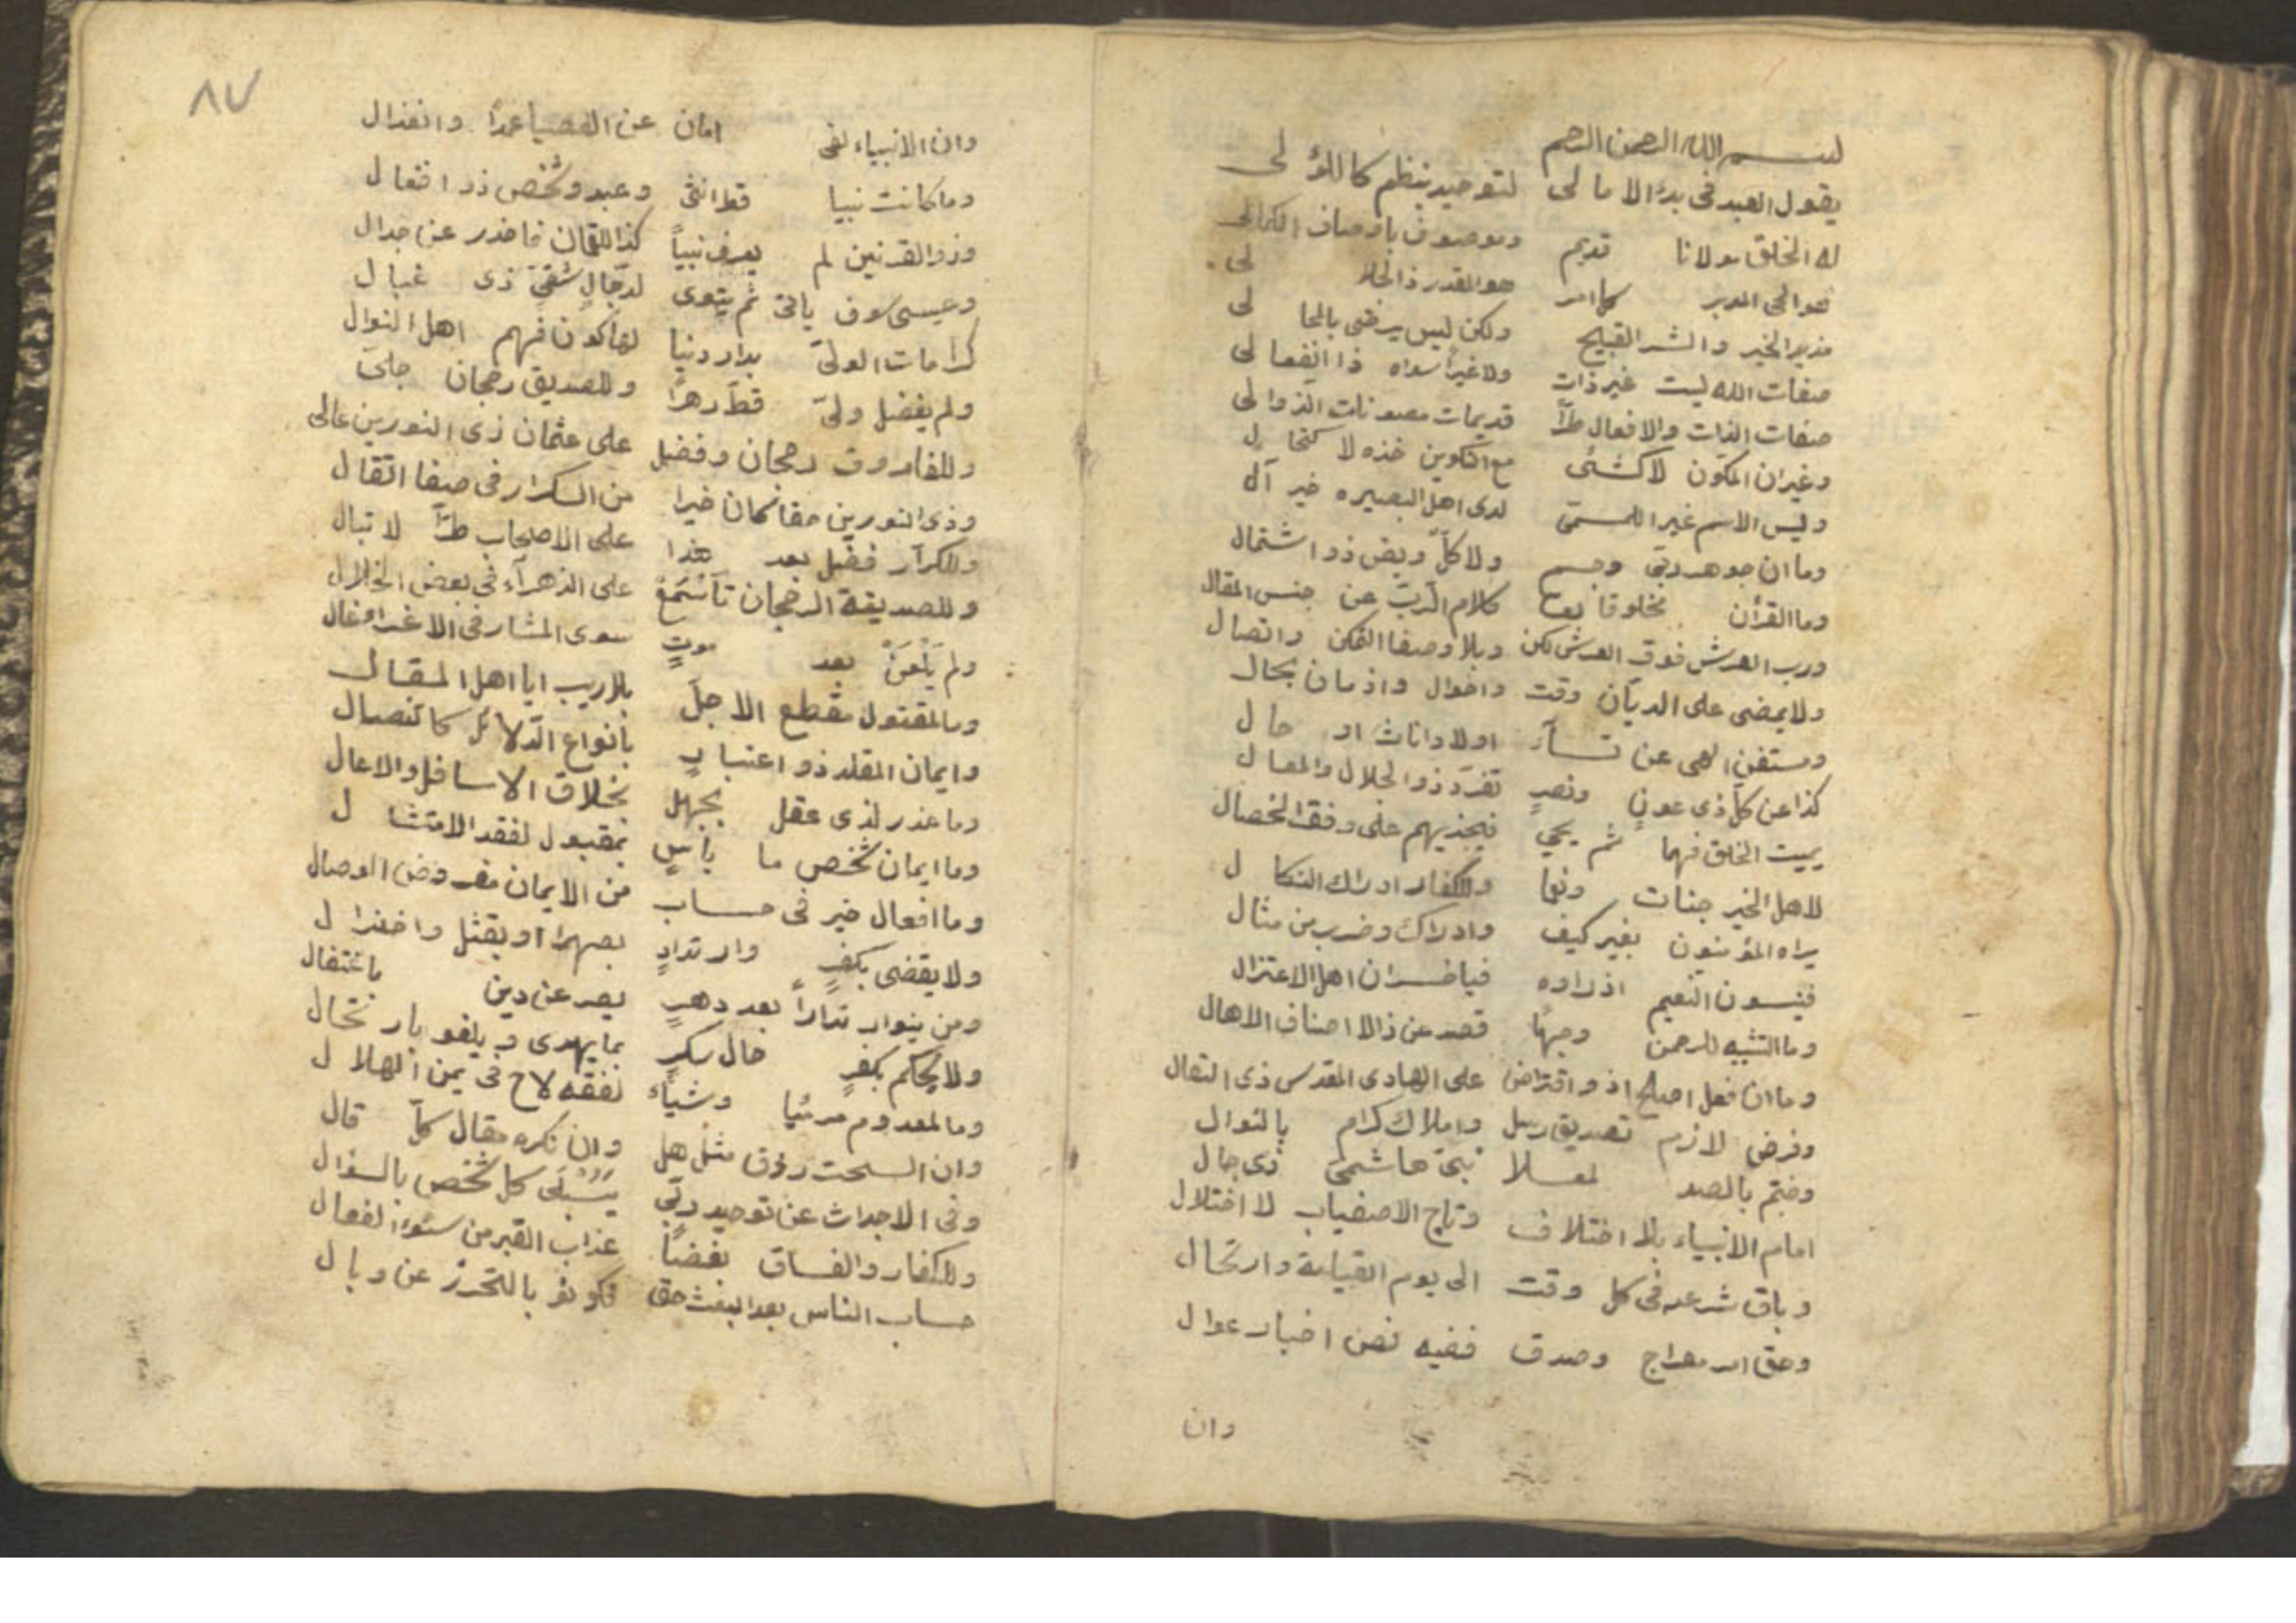 بسم الله الرحمن الرحيم
يقول العبد فى بدء الامالى لتوحيد بنظم كاللؤلى
اله الخلق مولانا قديم وموصوف باوصاف الكمالى
هو الحى المدبر كل امر هو المقدر ذو الجلالى
مريد الخير والشر القبيح ولكن ليس يرضى بالمحالى
صفات الله ليست غير ذات ولا غيرا سواه ذا انفصالى
صفات الذات والافعال طرّا قديمات مصونات الزوالى
وغيران المكون لا كشئى مع التكوين خذه لاكتحال
وليس الاسم غيرا للمسمّى لدى اهل البصيره خير آل
وما ان جوهر ربّى وجسم ولا كلّ وبعض ذو اشتمال
وما القرأن مخلوقا تعا كلام الربّ عن جنس المقال
ورب العرش فوق العرش لكن وبلا وصف التمكن واتصال
ولا يمضى على الديّان وقت واحوال وازمان بحال
ومستغن الهى عن نسآء اولاد اناث او حال
كذا عن كلّ ذى عونٍ ونصرٍ تفرّد ذو الجلال والمعال
يميت الخلق قهما ثم يحيى فيجذيهم على وفق الخصال
لاهل الخير جنات ونعما وللكفار ادراك النكال
يراه المؤمنون بغير كيف وادراك وضرب من مثال
فينسون النعيم اذا راوه فياخسران اهل الاعتزال
وما التشبيه للرحمن وجهًا فصن عن ذالا اصناف الاهال
وما ان فعل اصلح اذو افتراض على الهادى المقدس ذى التعال
وفرض لازم تصديق رسل واملاك كرام بالنوال
وختم بالصد لمعلا نبىّ هاشمىّ ذى جمال
امام الانبياء بلا اختلاف وتاج الاصفياب لا اختلال
وباق شرعه فى كل وقت الى يوم القيامة وارتحال
وحق امر معراج وصدق ففيه نص اخبار عوال
وان
٨٧
وان الانبياء لفى امان عن العصيا عمدًا وانعزال
وما كانت نبيا قط انثى وعبد وشخص ذو افتعال
وذو القرنين لم يعرف نبياً كذا لقمان فاحذر عن جدال
وعيسى سوف ياتى ثم يتوى لدجّالٍ شقىّ ذى خبال
كرامات الولىّ بدار دنيا لها كون فهم اهل النوال
ولم يفضل ولىّ قطّ دهرًا وللصديق رجحان جلىّ
وللفاروق رجحان وفضل على عثمان ذى النورين عالى
وذى النورين حقا كان خيرا من الكرار فى صف القتال
وللكرّار فضل بعد هذا على الاصحاب طرّا لا تبال
وللصديقة الرجحان فاسْتَمِعْ على الذهرآء فى بعض الخلال
ولم يَلْعَنْ بعد موتٍ سوى المشار فى الاغراء غال
وما لمقتول مقطع الاجل بلا ريب ايا اهل المقال
وايمان المقلد ذو اعتبارٍ بأنواع الدّلائل كالنصال
وما عذر لذى عقل بجهل بخلاق الاسافل والاعال
وما ايمان شخص ما بأسٍ بمقبول لفقد الامتثال
وما افعال خير فى حساب من الايمان مفروض الوصال
ولا يقضى بكفرٍ وارتدادٍ بصهرا او بقتل واختزال
ومن ينوا ارتدادًا بعد دهرٍ يصر عن دين باغتفال
ولا يحكم بكفرٍ حال سكرٍ بما يهدى ويلغو بارتجال
وما لمعدوم مرئيا وشياء لفقه لاح فى يمن الهلال
وان السحت رزق مثل حل وان نكره مقال كلّ قال
وفى الاجداث عن توحيد ربّى سَيُبْلَى كل شخص بالسؤال
وللكفار والفساق بغضًا عذاب القبر من سُوء الفعال
حساب الناس بعد البعث حق فكونو بالتحرز عن وبال